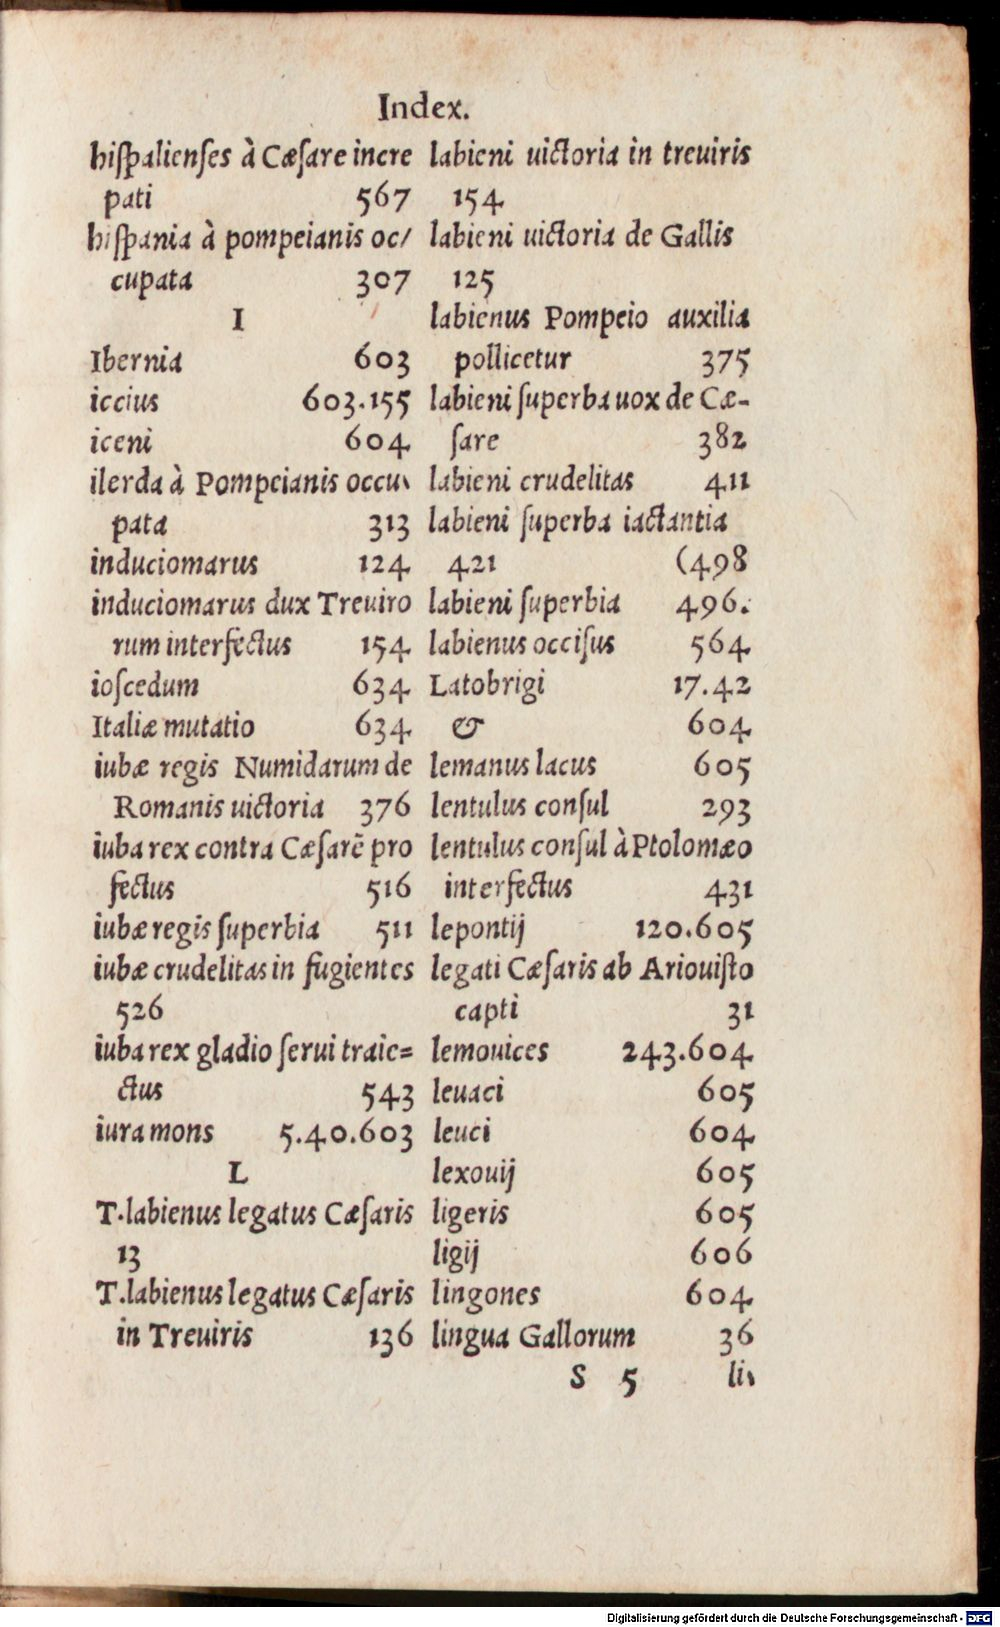 Index.
hiſpalienſes à Cæſare incre
pati 567
hiſpania à pompeianis oc/
cupata 307
I
Ibernia 603
iccius 603.155
iceni 604
ilerda à Pompeianis occu
pata 313
induciomarus 124
induciomarus dux Treuiro
rum interfectus 154
ioſcedum 634
Italiæ mutatio 634
iubæ regis Numidarum de
Romanis uictoria 376
iuba rex contra Cæſarē pro
fectus 516
iubæ regis ſuperbia 511
iubæ crudelitas in fugientes
526
iuba rex gladio ſerui traie=
ctus 543
iura mons 5.40.603
L
T.labienus legatus Cæſaris
13
T.labienus legatus Cæſaris
in Treuiris 136
labieni uictoria in treuiris
154
labieni uictoria de Gallis
125
labienus Pompeio auxilia
pollicetur 375
labieni ſuperba uox de Cæ-
ſare 382
labieni crudelitas 411
labieni ſuperba iactantia
421 (498
labieni ſuperbia 496.
labienus occiſus 564
Latobrigi 17.42
& 604
lemanus lacus 605
lentulus conſul 293
lentulus conſul à Ptolomæo
interfectus 431
lepontij 120.605
legati Cæſaris ab Ariouiſto
capti 31
lemouices 243.604
leuaci 605
leuci 604
lexouij 605
ligeris 605
ligij 606
lingones 604
lingua Gallorum 36
S 5 li
Digitalisierung gefördert durch die Deutsche Forschungsgemeinschaft - DFG